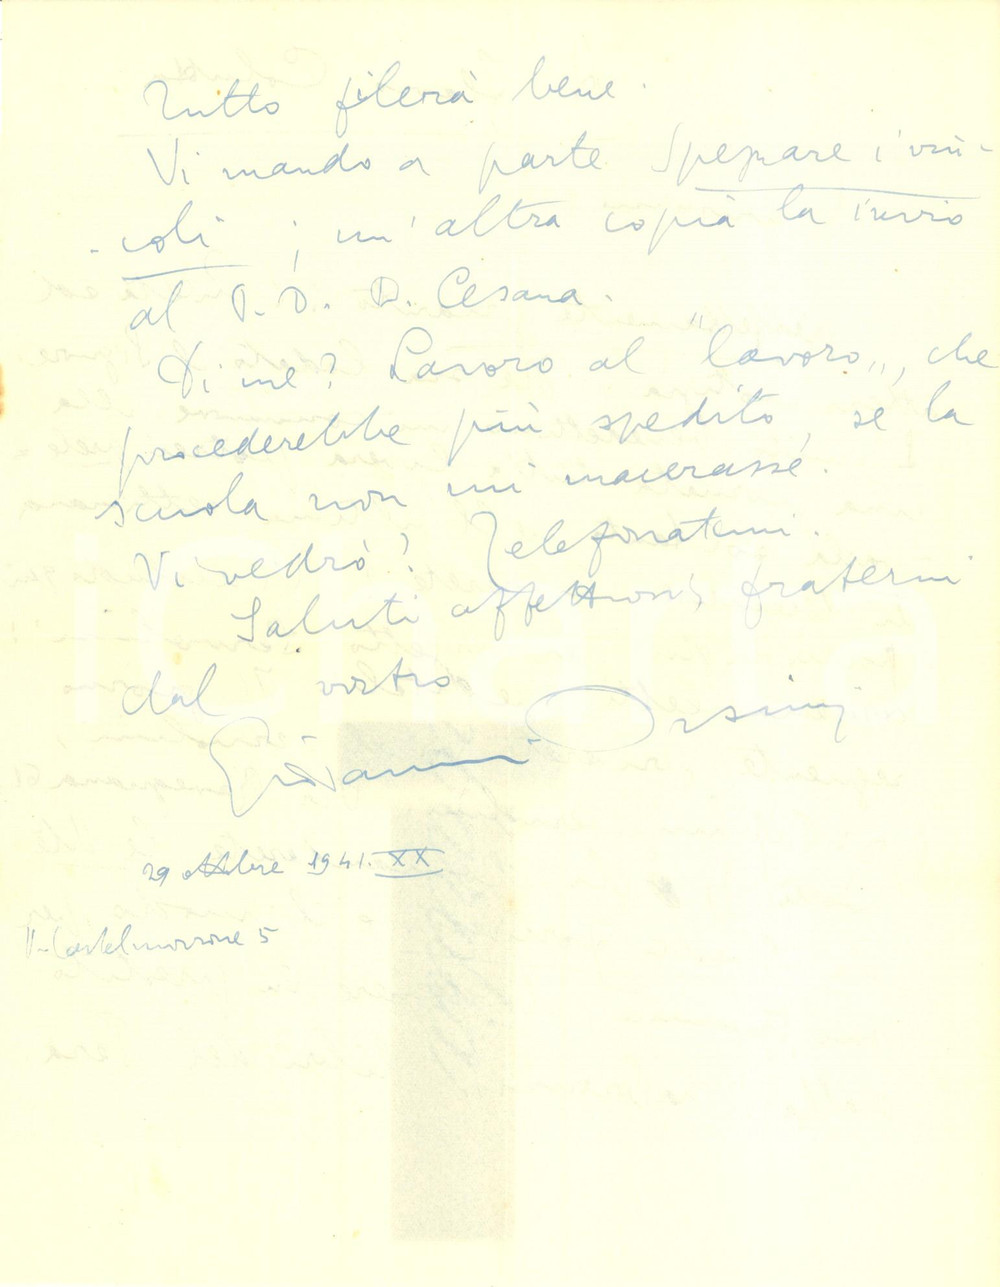 Tutto filerà bene.
Vi mando a parte Spezzare i vin-
-coli; un'altra copia la invio
al P. D. D. Cesana.
Di me? Lavoro al "lavoro", che
procederebbe più spedito, se la
scuola non mi macerasse.
Vi vedrò? Telefonatemi.
Saluti affettuosi, fraterni
dal vostro
Giovanni Orsini
29 ottobre 1941. XX
V. Castelmorrone 5
iCharta